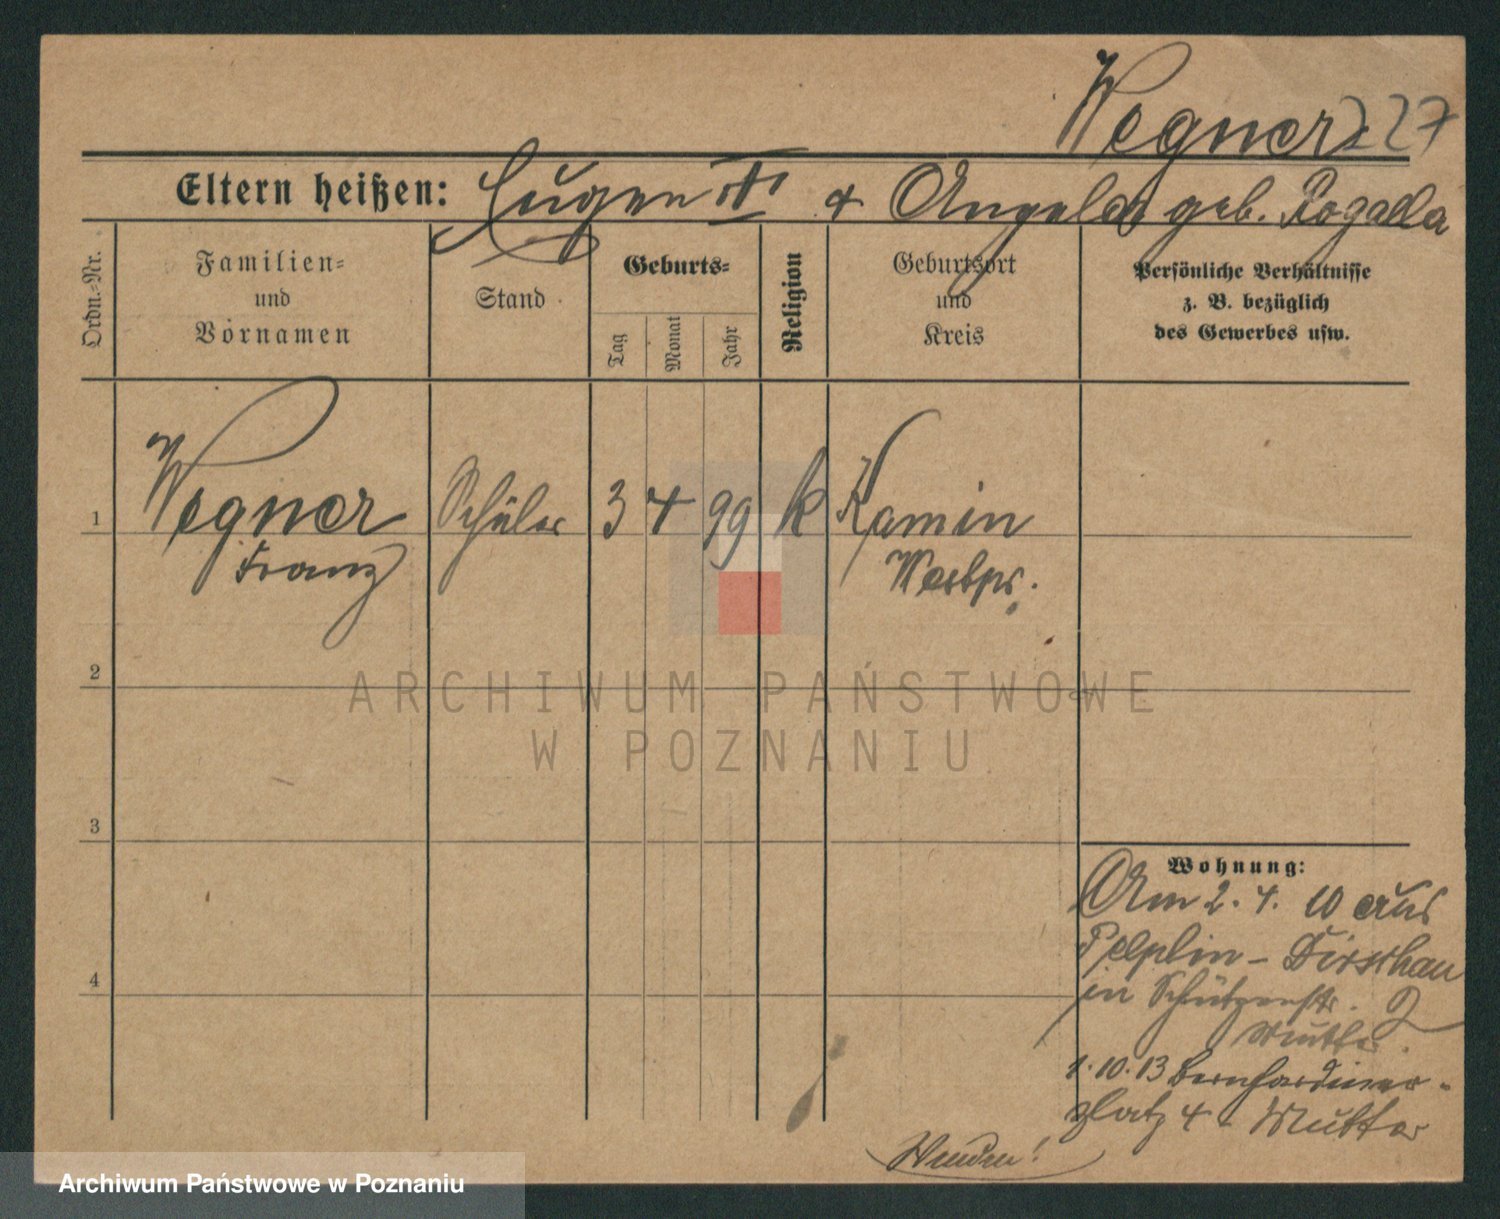 Wegner 227
Eltern heißen: Eugen & Angela geb. Rogalla
Ordn.-Nr.
Familien-
und
Vornamen
Stand
Geburts-
Tag
Monat
Jahr
Religion
Geburtsort
und
Kreis
Persönliche Verhältnisse
z. B. bezüglich
des Gewerbes usw.
1 Wegner Schüler 3 4 99 k Kamin
Franz Westpr.
2
3
4
Wohnung:
Am 2. 4. 10 aus
Pelplin - Dirschau
in Schützenstr. 2
Mutter.
1.10.13 Bernhardiner-
platz 4 - Mutter
Wenden!
ARCHIWUM PAŃSTWOWE
W POZNANIU
Archiwum Państwowe w Poznaniu